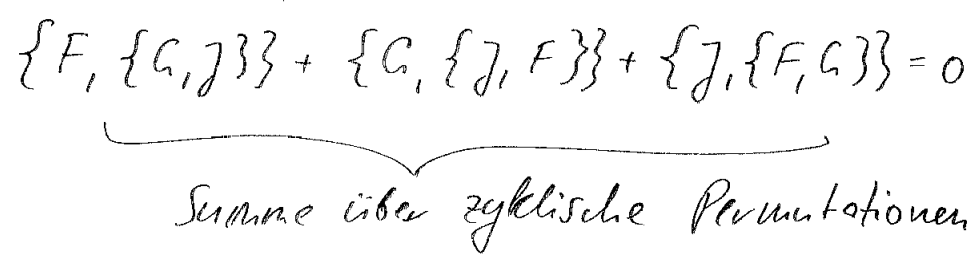 {F, {G, J}} + {G, {J, F}} + {J, {F, G}} = 0
Summe über zyklische Permutationen